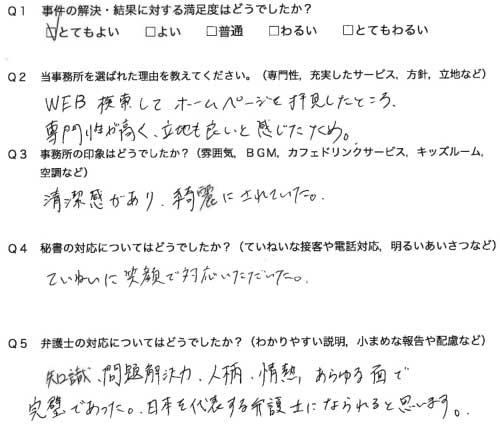 Q1 事件の解決・結果に対する満足度はどうでしたか?
☑とてもよい □よい □普通 □わるい □とてもわるい
Q2 当事務所を選ばれた理由を教えてください。(専門性, 充実したサービス, 方針, 立地など)
WEB検索してホームページを拝見したところ、
専門性が高く、立地も良いと感じたため。
Q3 事務所の印象はどうでしたか?(雰囲気, BGM, カフェドリンクサービス, キッズルーム,
空調など)
清潔感があり、綺麗にされていた。
Q4 秘書の対応についてはどうでしたか?(ていねいな接客や電話対応, 明るいあいさつなど)
ていねいに笑顔で対応いただいた。
Q5 弁護士の対応についてはどうでしたか?(わかりやすい説明, 小まめな報告や配慮など)
知識、問題解決力、人柄、情熱、あらゆる面で
完璧であった。日本を代表する弁護士になられると思います。